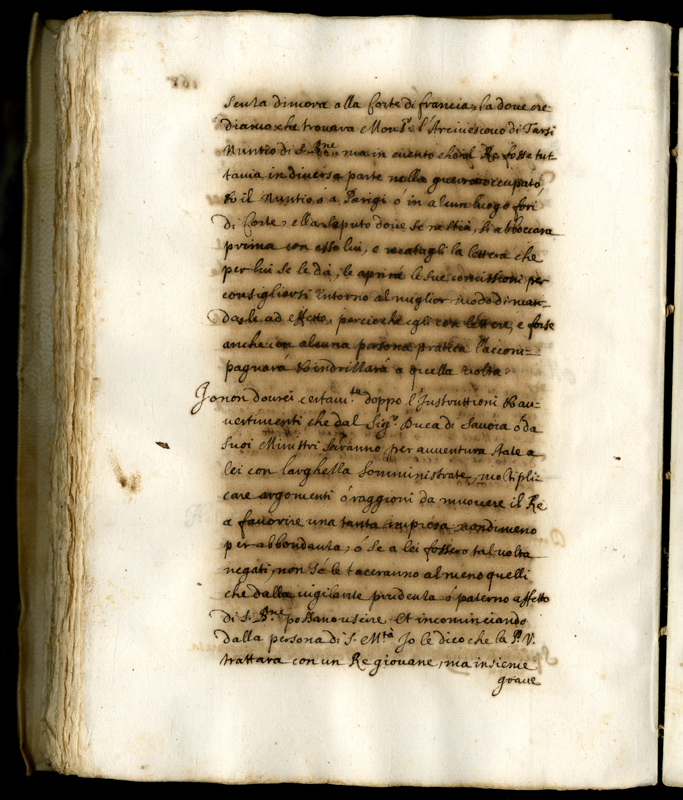 senza dimora alla Corte di francia, la dove cre-
diamo che trovarà Mons.r l'Arcivescovo di Tarsi
Nuntio di S. B.ne ma in evento che il Re fosse tut-
tavia in diversa parte nella guerra occupato,
et il Nuntio ò a Parigi ò in alcun luogo fori
di Corte, ella saputo dove se ne stia, si abboccarà
prima con esso lui, e recatagli la lettera che
per lui se le dà, le aprirà le sue comissioni per
consigliarsi intorno al miglior modo di man-
darle ad effetto, percioche egli con lettere, e forse
anche con alcuna persona pratica l'accom-
pagnarà et indrizzarà a quella volta.
Io non dovrei certam.te doppo l'Instruttioni et au-
vertimenti che dal Sig.r Duca di Savoia ò da
suoi Ministri saranno per avventura state a
lei con larghezza somministrate, moltipli-
care argomenti ò raggioni da muovere il Re
a favorire una tanta impresa nondimeno
per abbondanza, ò se a lei fossero tal volta
negati, non se le taceranno almeno quelli
che dalla vigilante prudenza ò paterno affetto
di S. B.ne possano uscire. Et incominciando
dalla persona di S. M.tà Io le dico che la P. V.
trattarà con un Re giovane, ma insieme
grave